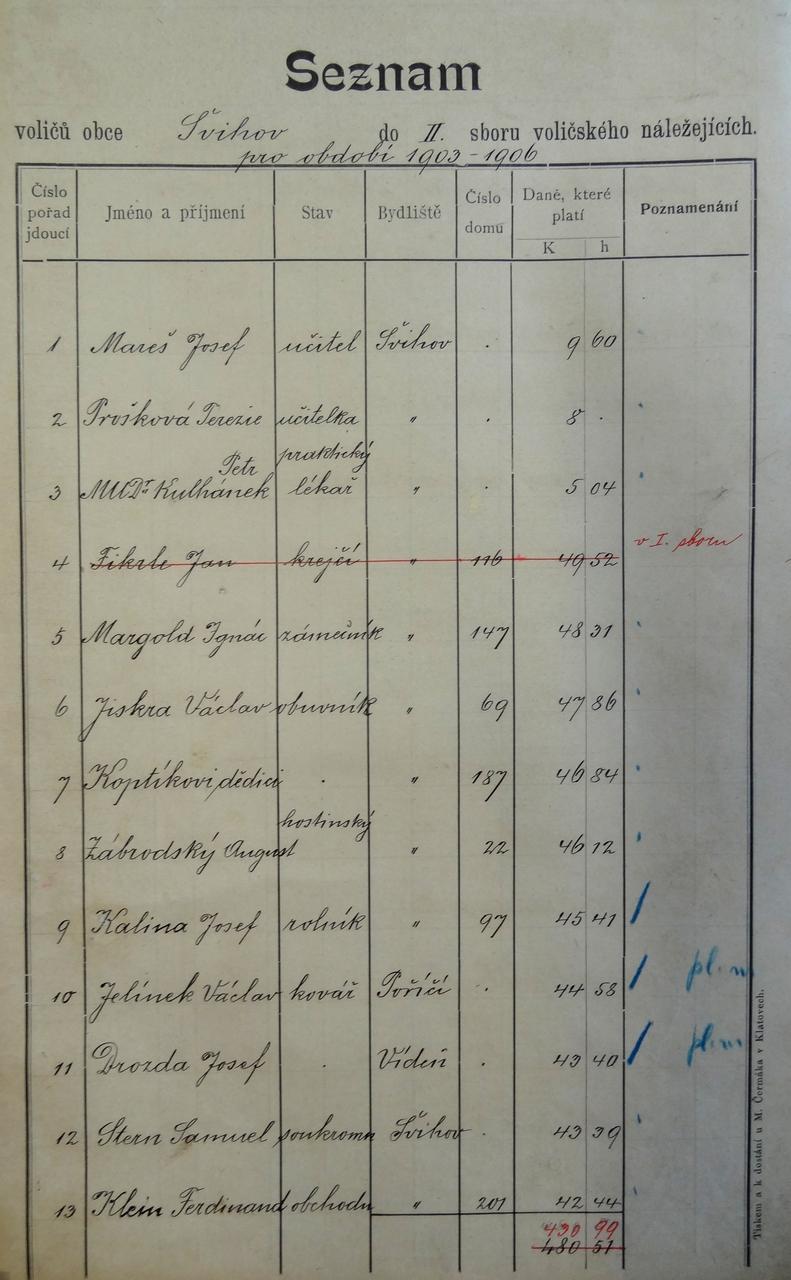 Seznam
voličů obce Švihov do II. sboru voličského náležejících.
pro období 1903-1906
Číslo pořad jdoucí Jméno a příjmení Stav Bydliště Číslo domu Daně, které platí K h Poznamenání
1 Mareš Josef učitel Švihov . 9 60
2 Prošková Terezie učitelka " . 8 .
Petr praktický
3 MUDr Kulhánek lékař " . 5 04
v I. sboru
4 Fikrle Jan krejčí " 116 49 52
5 Margold Ignác zámečník " 147 48 31
6 Jiskra Václav obuvník " 69 47 86
7 Koptíkovi dědici . " 187 46 84
hostinský
8 Zábrodský August " 22 46 12
9 Kalina Josef rolník " 97 45 41
10 Jelínek Václav kovář Poříčí . 44 58 pl. m
11 Drozda Josef . Vídeň . 43 40
12 Stern Samuel soukromn Švihov . 43 39
13 Klein Ferdinand obchodn " 201 42 44
430 99
480 51
Tiskem a k dostání u M. Čermáka v Klatovech.